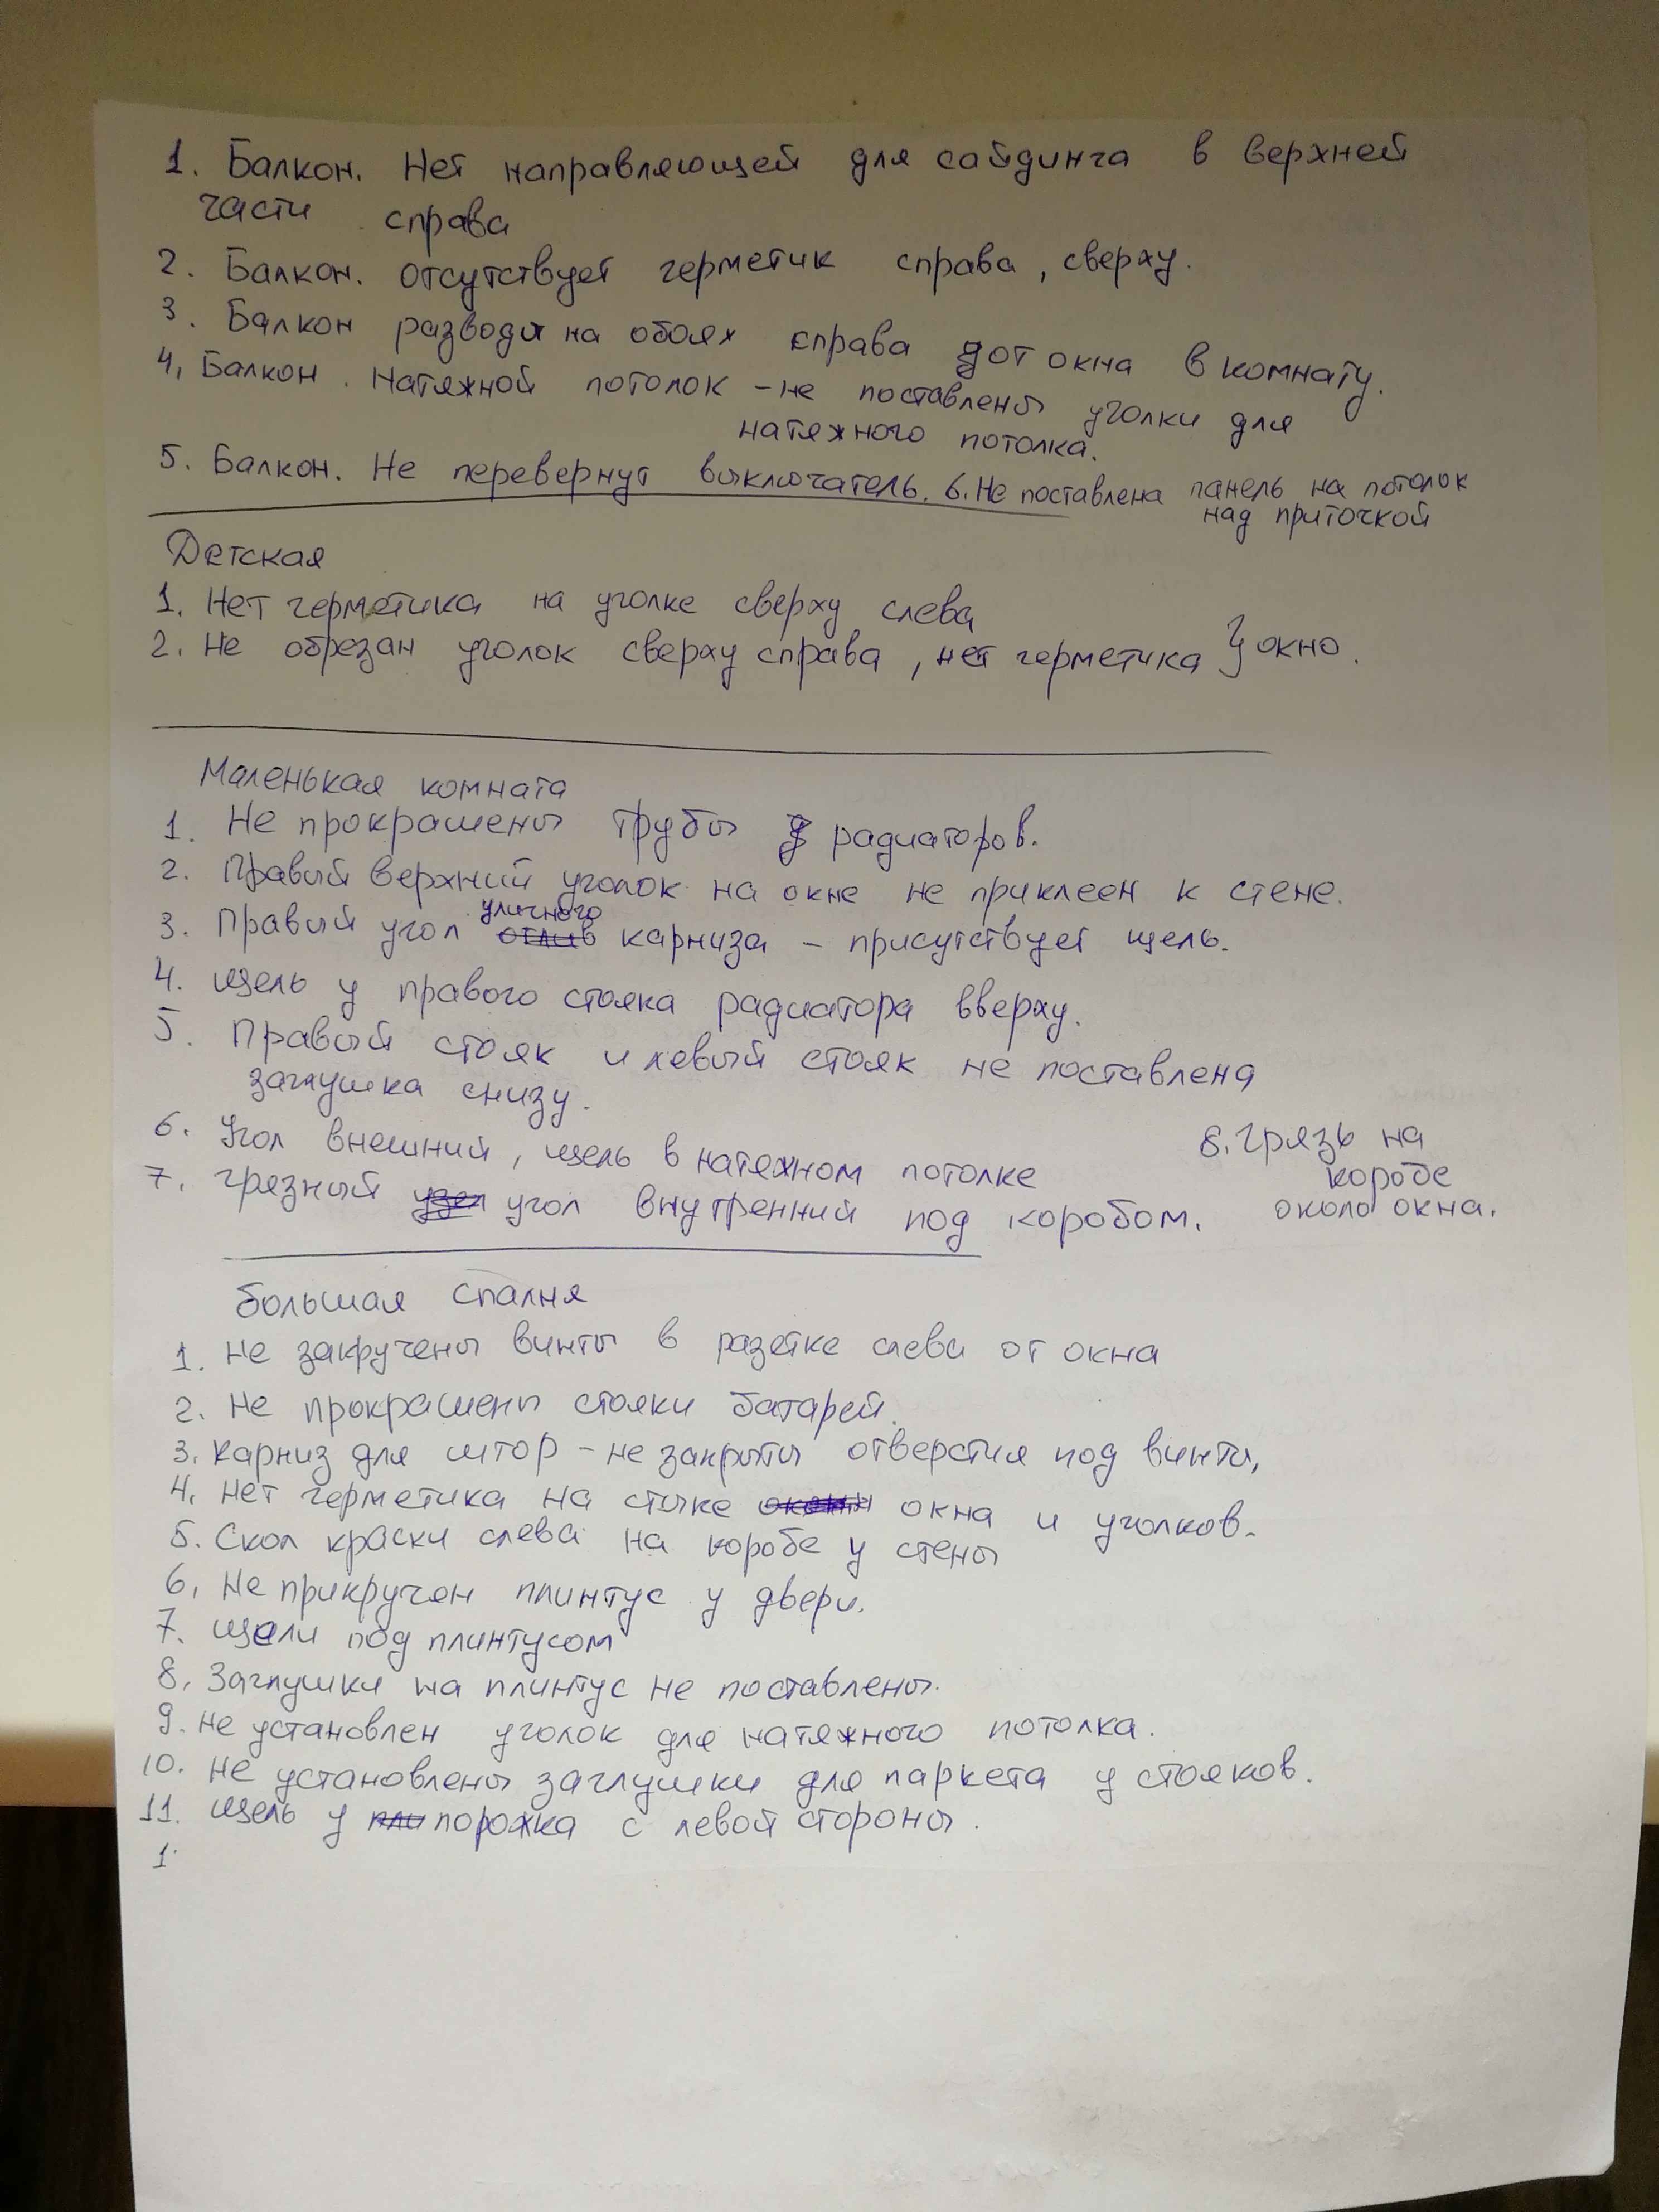 1. Балкон. Нет направляющей для сайдинга в верхней
части справа
2. Балкон. отсутствует герметик справа, сверху.
3. Балкон разводы на обоях справа от окна в комнату.
4. Балкон. Натяжной потолок - не поставлены уголки для
натяжного потолка.
5. Балкон. Не перевернут выключатель. 6. Не поставлена панель на потолок
над приточкой
Детская
1. Нет герметика на уголке сверху слева
2. Не обрезан уголок сверху справа, нет герметика } окно.
Маленькая комната
1. Не прокрашены трубы у радиаторов.
2. Правый верхний уголок на окне не приклеен к стене.
3. Правый угол уличного карниза - присутствует щель.
4. щель у правого стояка радиатора вверху.
5. Правый стояк и левый стояк не поставлена
заглушка снизу.
6. Угол внешний, щель в натяжном потолке
7. грязный угол внутренний под коробом.
8. грязь на
коробе
около окна.
Большая спалня
1. Не закручены винты в разетке слева от окна
2. Не прокрашены стояки батарей.
3. Карниз для штор - не закрыты отверстия под винты,
4. Нет герметика на стыке окна и уголков.
5. Скол краски слева на коробе у стены
6. Не прикручен плинтус у двери.
7. Щели под плинтусом
8. Заглушки на плинтус не поставлены.
9. Не установлен уголок для натяжного потолка.
10. Не установлены заглушки для паркета у стояков.
11. щель у порожка с левой стороны.
1.